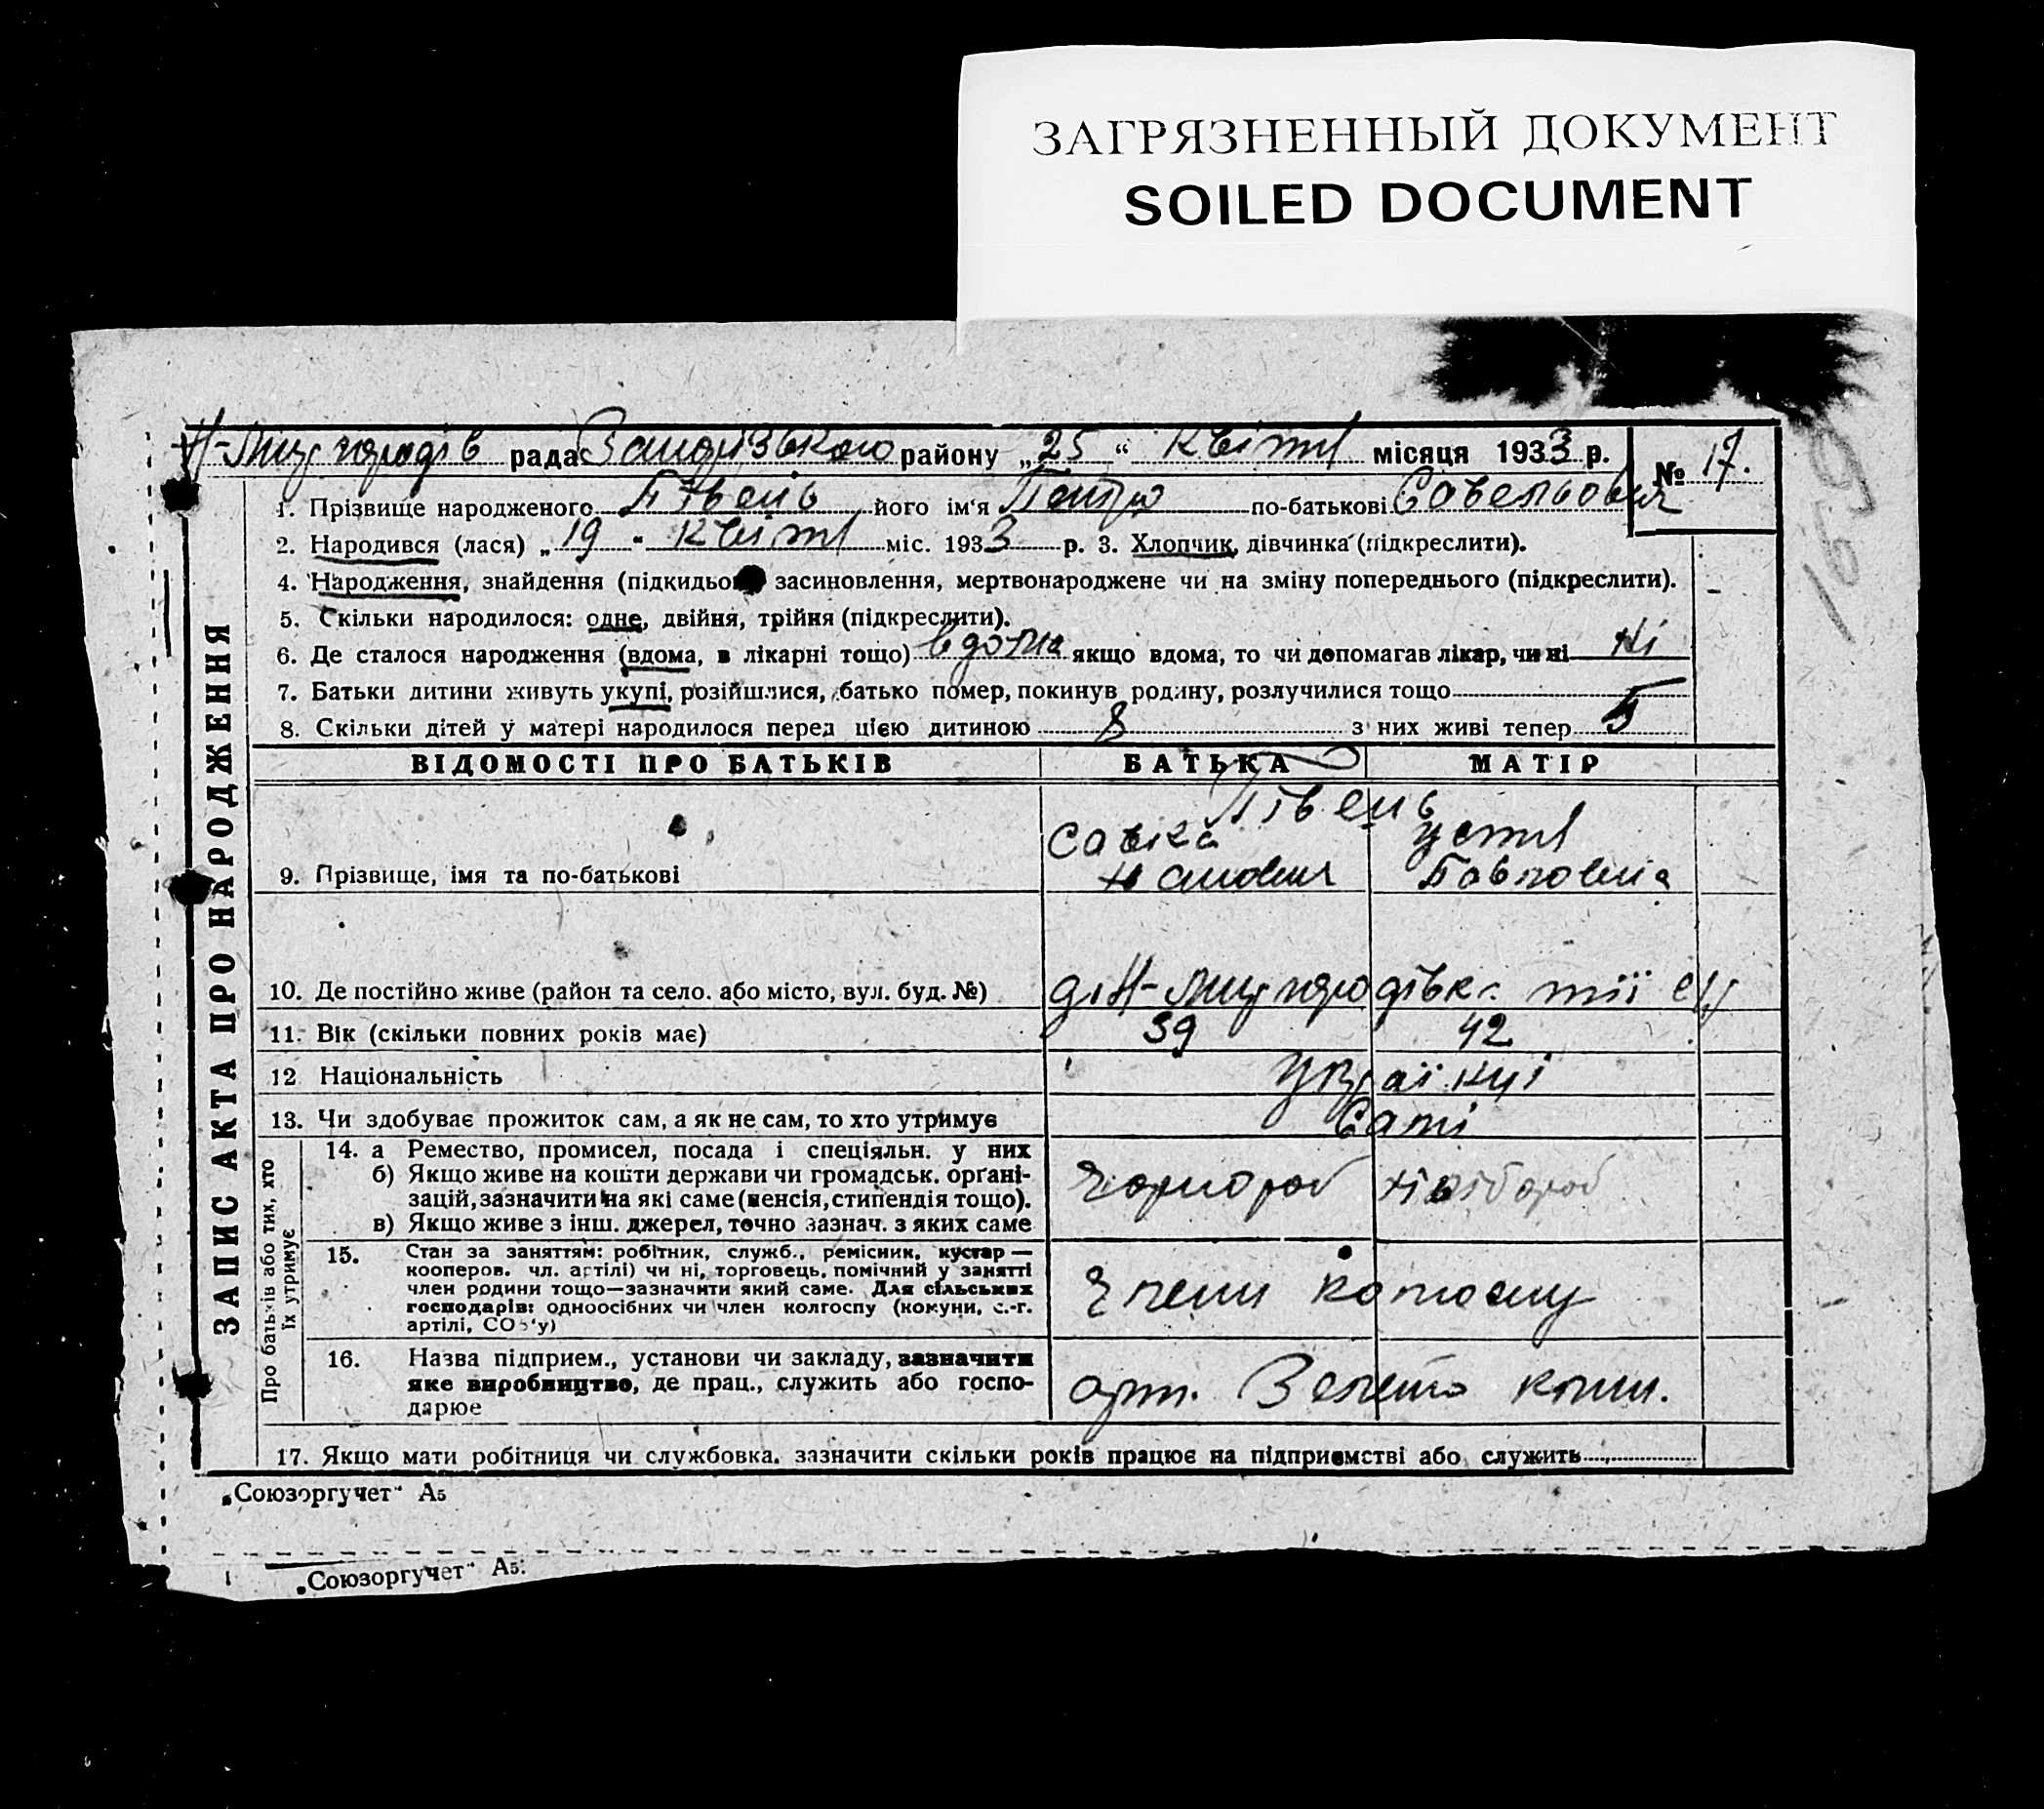 ЗАГРЯЗНЕННЫЙ ДОКУМЕНТ
SOILED DOCUMENT
1659
рада району „25“ квітня місяця 1933 р.
№ 17.
1. Прізвище народженого Півень його ім'я Петро по-батькові Савельович
2. Народився (лася) „19" квітня міс. 1933 р. 3. Хлопчик, дівчинка (підкреслити).
4. Народження, знайдення (підкидьо засиновлення, мертвонароджене чи на зміну попереднього (підкреслити).
5. Скільки народилося: одне, двійня, трійня (підкреслити).
6. Де сталося народження (вдома, в лікарні тощо) вдома якщо вдома, то чи допомагав лікар, чи ні ні
7. Батьки дитини живуть укупі, розійшлися, батько помер, покинув родину, розлучилися тощо
8. Скільки дітей у матері народилося перед цією дитиною 8 з них живі тепер 5
ЗАПИС АКТА ПРО НАРОДЖЕННЯ
ВІДОМОСТІ ПРО БАТЬКІВ БАТЬКА МАТІР
Півень
Савка Устя
Павловна
9. Прізвище, імя та по-батькові
10. Де постійно живе (район та село. або місто, вул. буд. №)
11. Вік (скільки повних років має) 39 42
12 Національність Українці
13. Чи здобуває прожиток сам, а як не сам, то хто утримує Самі
Про батьків або тих, хто їх утримує
14. а Ремество, промисел, посада і спеціяльн. у них
б) Якщо живе на кошти держави чи громадськ. орґані-
зацій, зазначити на які саме (пенсія, стипендія тощо).
в) Якщо живе з інш. джерел, точно зазнач. з яких саме
Чорнороб
15. Стан за заняттям: робітник, служб., ремісник, кустар —
кооперов. чл. артілі) чи ні, торговець, помічний у занятті
член родини тощо—зазначити який саме. Для сільських
господарів: одноосібних чи член колгоспу (комуни, с.-г.
артілі, СОЗ'у)
Члени колгоспу
16. Назва підприєм., установи чи закладу, зазначити
яке виробництво, де прац., служить або госпо-
дарює
арт.
17. Якщо мати робітниця чи службовка. зазначити скільки років працює на підприємстві або служить
„Союзоргучет" А5
„Союзоргучет" А5.